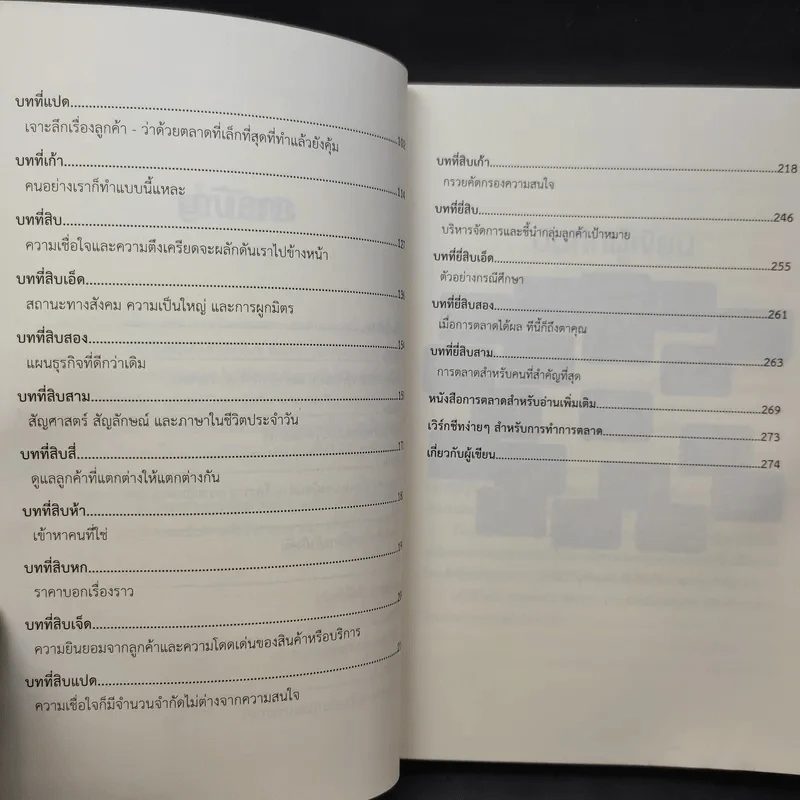 บทที่แปด
เจาะลึกเรื่องลูกค้า - ว่าด้วยตลาดที่เล็กที่สุดที่ทำแล้วยังคุ้ม
บทที่เก้า
คนอย่างเราก็ทำแบบนี้แหละ
บทที่สิบ
ความเชื่อใจและความตึงเครียดจะผลักดันเราไปข้างหน้า
บทที่สิบเอ็ด
สถานะทางสังคม ความเป็นใหญ่ และการผูกมิตร
บทที่สิบสอง
แผนธุรกิจที่ดีกว่าเดิม
บทที่สิบสาม
สัญศาสตร์ สัญลักษณ์ และภาษาในชีวิตประจำวัน
บทที่สิบสี่
ดูแลลูกค้าที่แตกต่างให้แตกต่างกัน
บทที่สิบห้า
เข้าหาคนที่ใช่
บทที่สิบหก
ราคาบอกเรื่องราว
บทที่สิบเจ็ด
ความยินยอมจากลูกค้าและความโดดเด่นของสินค้าหรือบริการ
บทที่สิบแปด
ความเชื่อใจก็มีจำนวนจำกัดไม่ต่างจากความสนใจ
บทที่สิบเก้า 218
กรวยคัดกรองความสนใจ
บทที่ยี่สิบ 246
บริหารจัดการและชี้นำกลุ่มลูกค้าเป้าหมาย
บทที่ยี่สิบเอ็ด 255
ตัวอย่างกรณีศึกษา
บทที่ยี่สิบสอง 261
เมื่อการตลาดได้ผล ทีนี้ก็ถึงตาคุณ
บทที่ยี่สิบสาม 263
การตลาดสำหรับคนที่สำคัญที่สุด
หนังสือการตลาดสำหรับอ่านเพิ่มเติม 269
เวิร์กชีทง่ายๆ สำหรับการทำการตลาด 273
เกี่ยวกับผู้เขียน 274